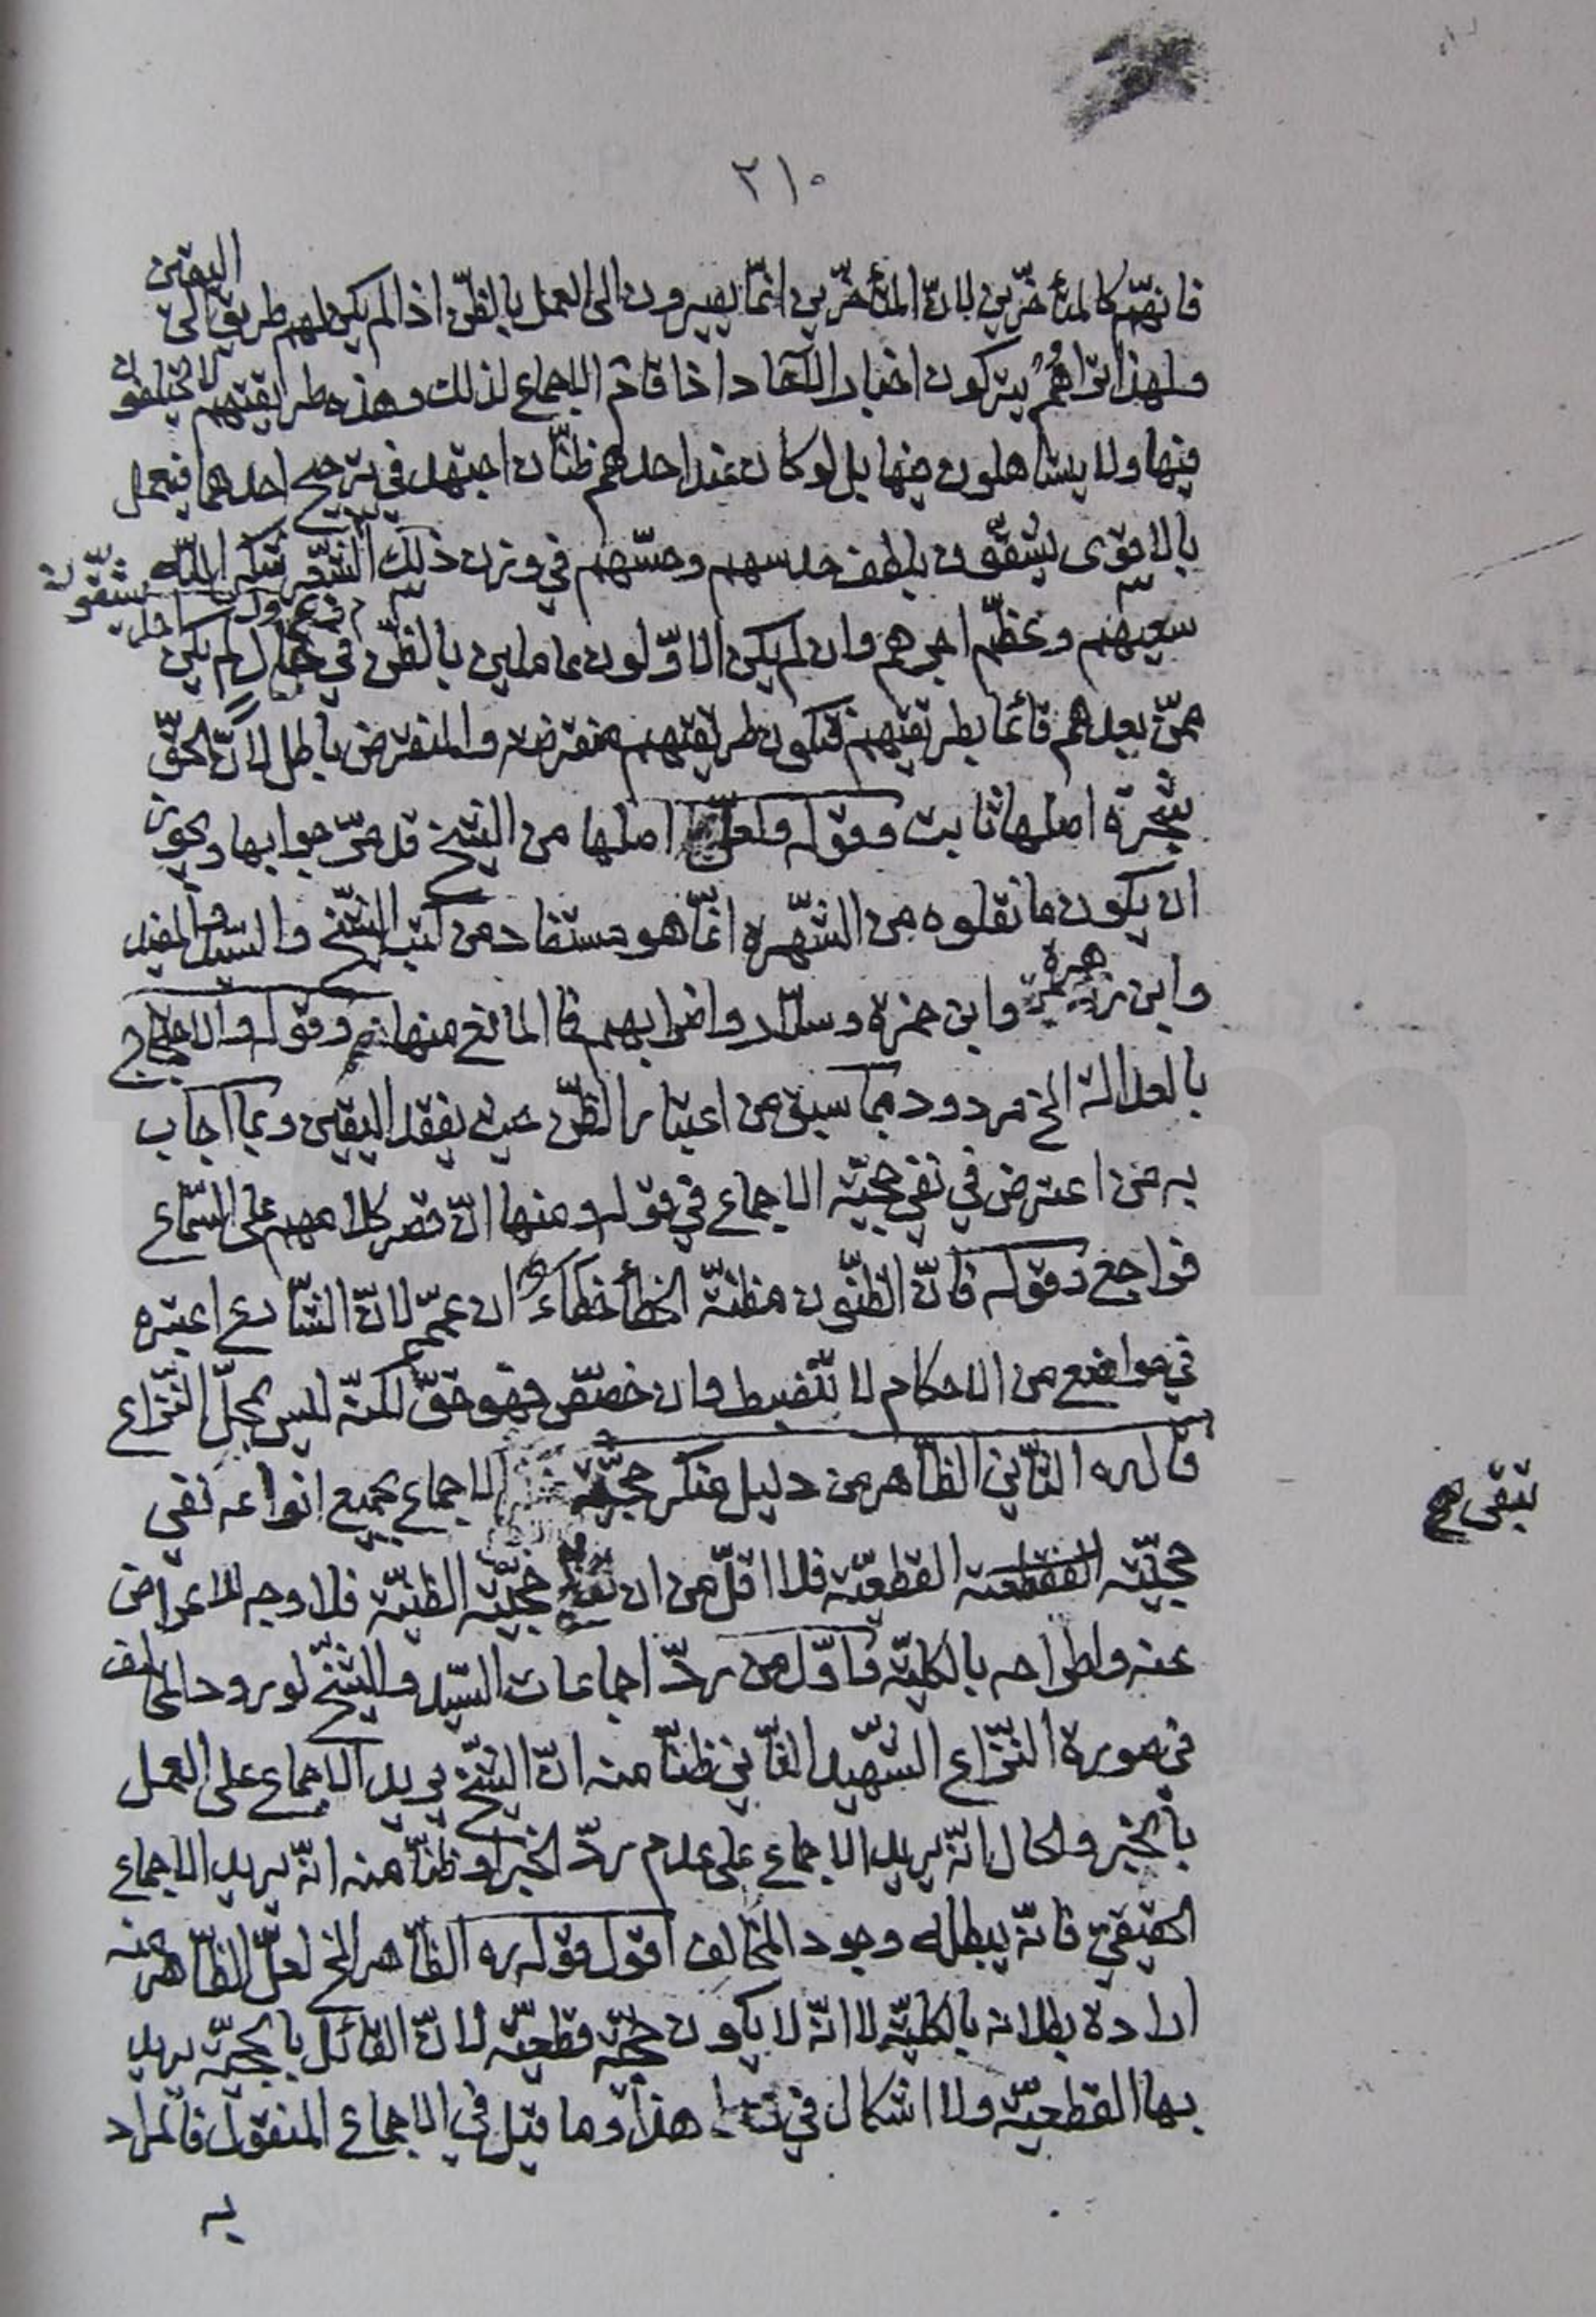 ٢١٠
فانهّم كالمتأخّرين لانّ المتأخّرين انّما يصيرون الى العمل بالظنّ اذا لم يكن لهم طريق الى اليقين
ولهذا تراهم يتركون اخبار الآحاد اذا قام الاجماع لذلك وهذه طريقتهم لا يختلفون
فيها ولا يتساهلون فيها بل لو كان عند احدهم ظنّان اجتهد في ترجيح احدهما فيعمل
بالاقوى يشقّون بلطف حدسهم وحسّهم في وزن ذلك شكر اللّه
سعيهم وعظّم اجرهم وان لم يكن الاوّلون عاملين بالظنّ في حال لم يكن
ممّن بعدهم قائما بطريقتهم فتكون طريقتهم منقرضة والمنقرض باطل لانّ الحقّ
شجرة اصلها ثابت وقوله ولعلّ اصلها من الشيخ قد مرّ جوابها ويجوز
ان يكون ما نقلوه من الشّهرة انّما هو مستفاد من كتب الشّيخ والسّيد والمفيد
وابن زهرة وابن حمزة وسلّار واضرابهم فما المانع منها وقوله والاحتجاج
بالعدالة الخ مردود بما سبق من اعتبار الظّنّ حيث يفقد اليقين وبما اجاب
به من اعترض في نفي حجيّة الاجماع في قوله ومنها انّ قصر كلامهم على السّماع
فراجع وقوله فانّ الظنّون مظنّة الخطأ خطاء ان عمّم لانّ الشّارع اعتبره
في مواضع من الاحكام لا تنضبط وان خصّص فهو حقّ لكنّه ليس بمحلّ النّزاع
قال ره الثّاني الظّاهر من دليل منكر حجيّة الاجماع بجميع انواعه نفي
حجيّة القطعيّة فلا اقلّ من ان تبقى حجيّة الظنيّة فلا وجه للاعراض
عنه واطراحه بالكليّة واوّل من ردّ اجماعات السّيد والشّيخ لورود المخالف
في صورة النّزاع الشّهيد الثّاني ظنّا منه انّ الشّيخ يريد الاجماع على العمل
بالخبر والحال انّه يريد الاجماع على عدم ردّ الخبر او ظنّا منه انّه يريد الاجماع
الحقيقيّ فانّه يبطله وجود المخالف اقول قوله ره الظّاهر الخ لعلّ الظّاهر منه
ارادة بطلانه بالكليّة لا انّه لا يكون حجّة قطعيّة لانّ القائل بالحجيّة يريد
بها القطعيّة ولا اشكال في هذا وما قيل في الاجماع المنقول فالمراد
به
تبقى صح